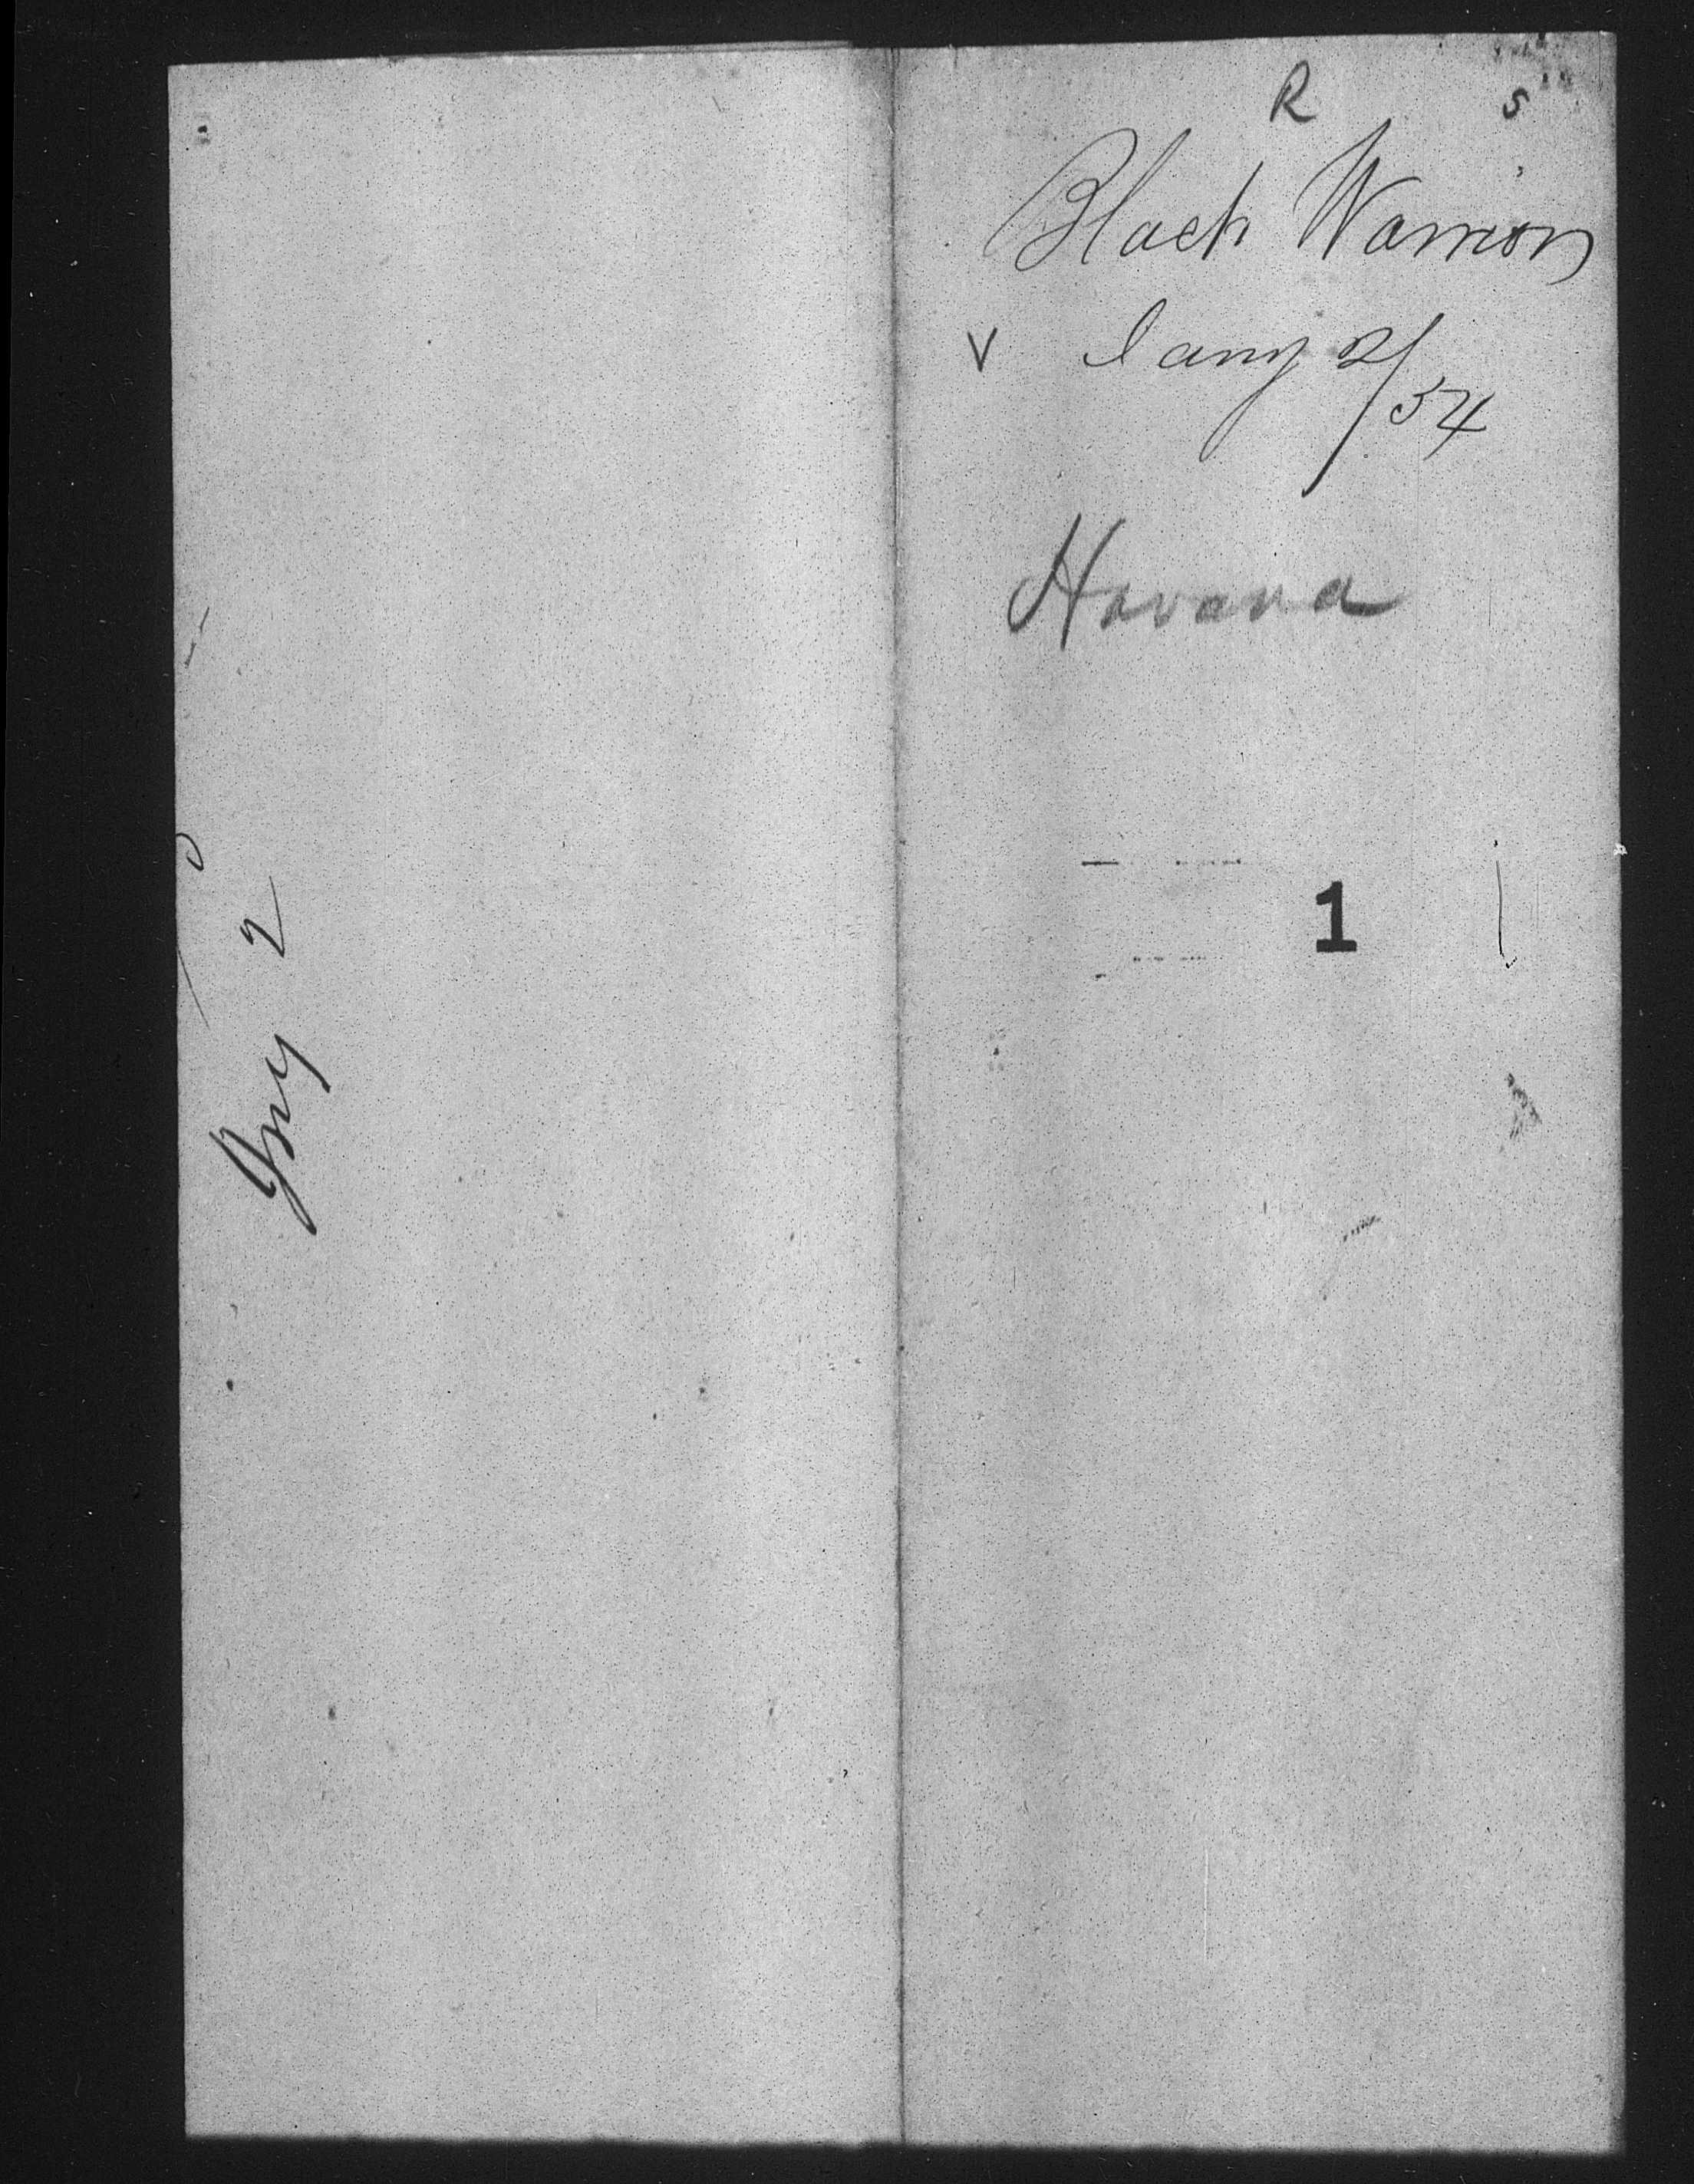 R s
Black Warrior
V Jany 2/54
Havana
1
Jny 2